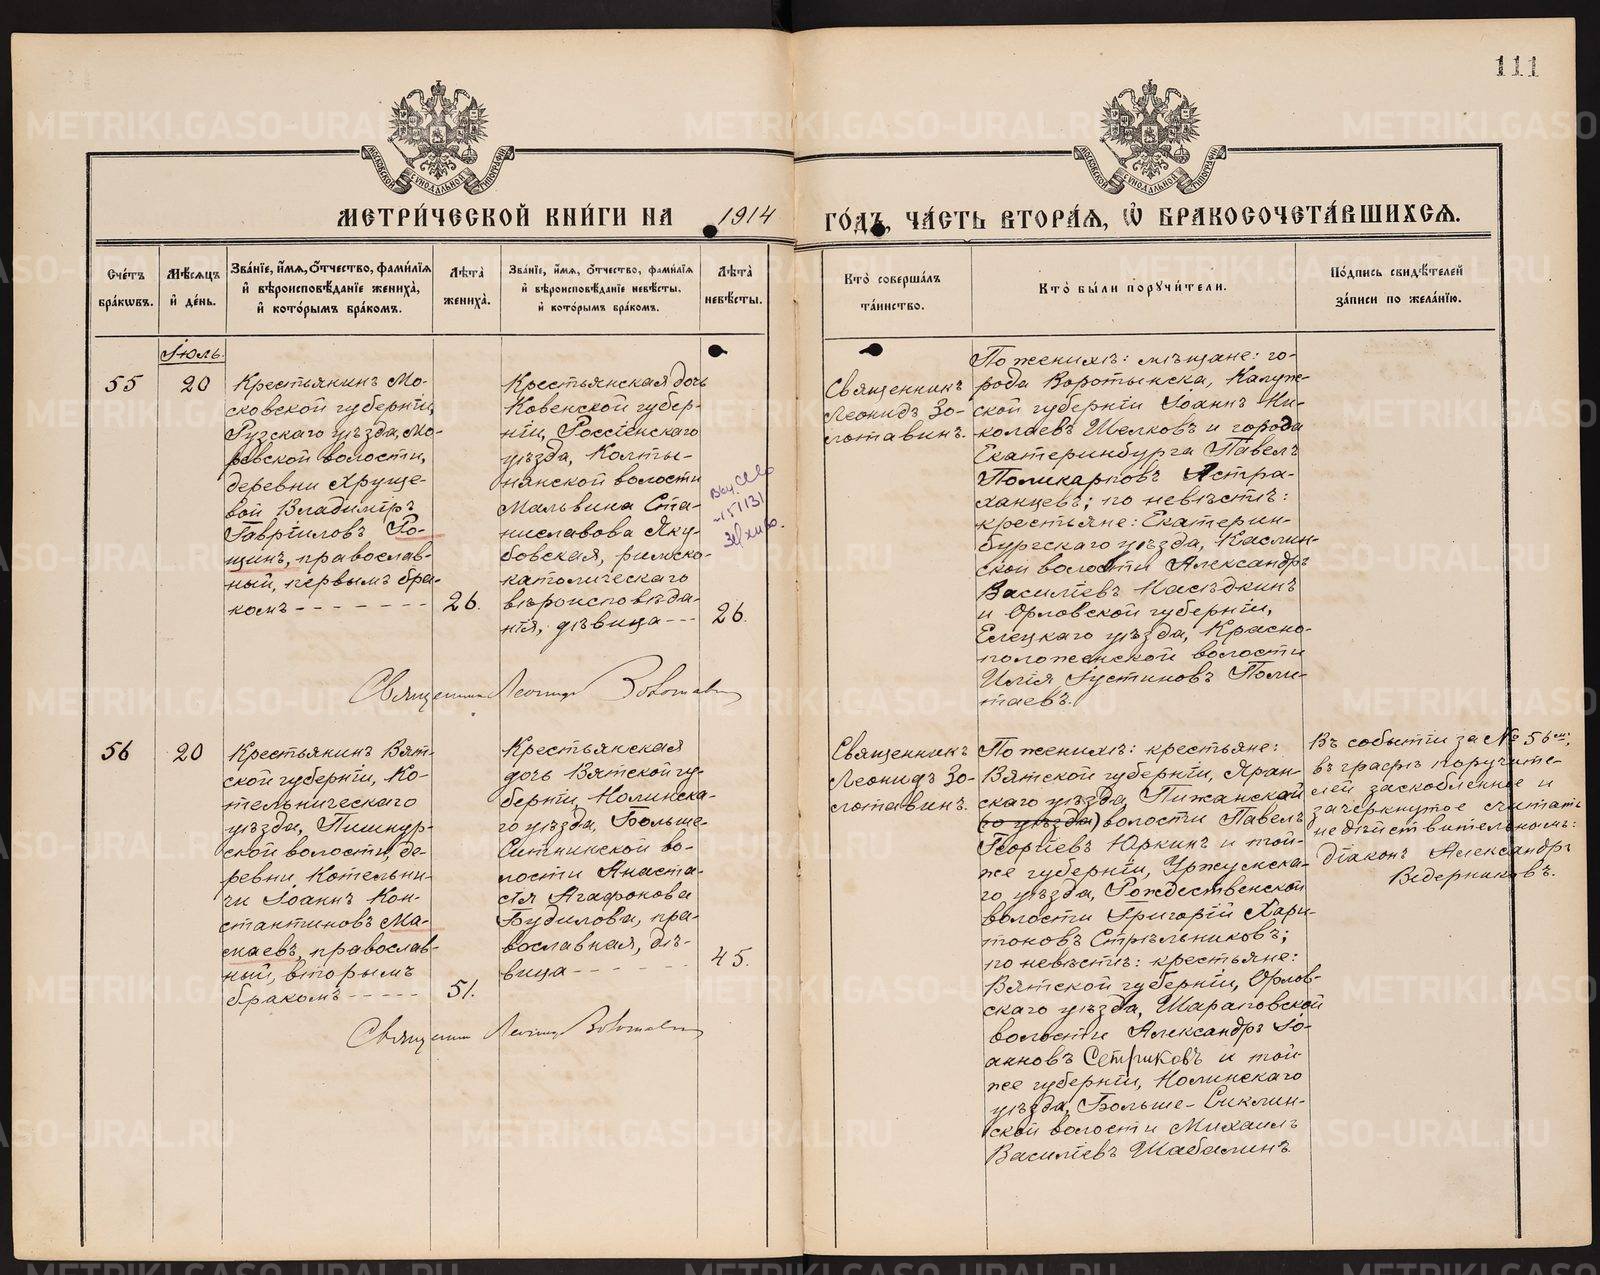 111
МОСКОВСКОЙ СѴНОДАЛЬНОЙ ТИПОГРАФІИ
МОСКОВСКОЙ СѴНОДАЛЬНОЙ ТИПОГРАФІИ
МЕТРИ́ЧЕСКОЙ КНИ́ГИ НА 1914 ГО́ДЪ, ЧА́СТЬ ВТОРА́Я, Ѡ҆ БРАКОСОЧЕТА́ВШИХСЯ.
Сче́тъ
бра́кѡвъ.
Мѣ́сяцъ
и҆ де́нь.
Зва́нїе, и҆́мя, ѻ҆́тчество, фами́лїя
и҆ вѣроисповѣ́данїе жениха̀,
и҆ кото́рымъ бра́комъ.
Лѣ́та̀
жениха̀.
Зва́нїе, и҆́мя, ѻ҆́тчество, фами́лїя
и҆ вѣроисповѣ́данїе невѣ́сты,
и҆ кото́рымъ бра́комъ.
Лѣ́та̀
невѣ́сты.
Кто̀ соверша́лъ
та́инство.
Кто̀ бы́ли порꙋчи́тели.
По́дпись свидѣ́телей
за́писи по жела́нїю.
Іюль.
55
20
Крестьянинъ Мо-
сковской губерніи,
Рузскаго уѣзда, Мо-
ревской волости,
деревни Хруще-
вой Владиміръ
Гавріиловъ Ро-
щинъ, православ-
ный, первымъ бра-
комъ - - - - - - -
26.
Крестьянская дочь
Ковенской губер-
ніи, Россіенскаго
уѣзда, Колты-
нянской волости
Мальвина Ста-
ниславова Яку-
бовская, римско-
католическаго
вѣроисповѣда-
нія, дѣвица - - -
26.
Священникъ
Леонидъ Зо-
лотавинъ.
По женихѣ: мѣщане: го-
рода Воротынска, Калуж-
ской губерніи Іоаннъ Ни-
колаевъ Шелковъ и города
Екатеринбурга Павелъ
Поликарповъ Астра-
ханцевъ; по невѣстѣ:
крестьяне: Екатерин-
бургскаго уѣзда, Каслин-
ской волости Александръ
Василіевъ Насѣдкинъ
и Орловской губерніи,
Елецкаго уѣзда, Красно-
положенской волости
Илія Іустиновъ Поли-
таевъ.
Священникъ Леонидъ Золотавинъ
56
20
Крестьянинъ Вят-
ской губерніи, Ко-
тельническаго
уѣзда, Пишнур-
ской волости, де-
ревни Котельни-
чи Іоаннъ Кон-
стантиновъ Ма-
маевъ, православ-
ный, вторымъ
бракомъ - - - - -
51.
Крестьянская
дочь Вятской гу-
берніи, Нолинска-
го уѣзда, Больше-
Ситнинской во-
лости Анаста-
сія Агафонова
Будилова, пра-
вославная, дѣ-
вица - - - - - -
45.
Священникъ
Леонидъ Зо-
лотавинъ.
По женихѣ: крестьяне:
Вятской губерніи, Яран-
скаго уѣзда, Пижанской
(го уѣзда) волости Павелъ
Георгіевъ Юркинъ и той-
же губерніи, Уржумска-
го уѣзда, Рождественской
волости Григорій Хари-
тоновъ Стрѣльниковъ;
по невѣстѣ: крестьяне:
Вятской губерніи, Орлов-
скаго уѣзда, Шараповской
волости Александръ Іо-
анновъ Сетриковъ и той-
же губерніи, Нолинскаго
уѣзда, Больше-Сиклин-
ской волости Михаилъ
Василіевъ Шабалинъ.
Въ событіи за № 56м:,
въ графѣ поручите-
лей заскобленное и
зачеркнутое считать
недѣйствительномъ:
Діаконъ Александръ
Ведерниковъ.
Священникъ Леонидъ Золотавинъ